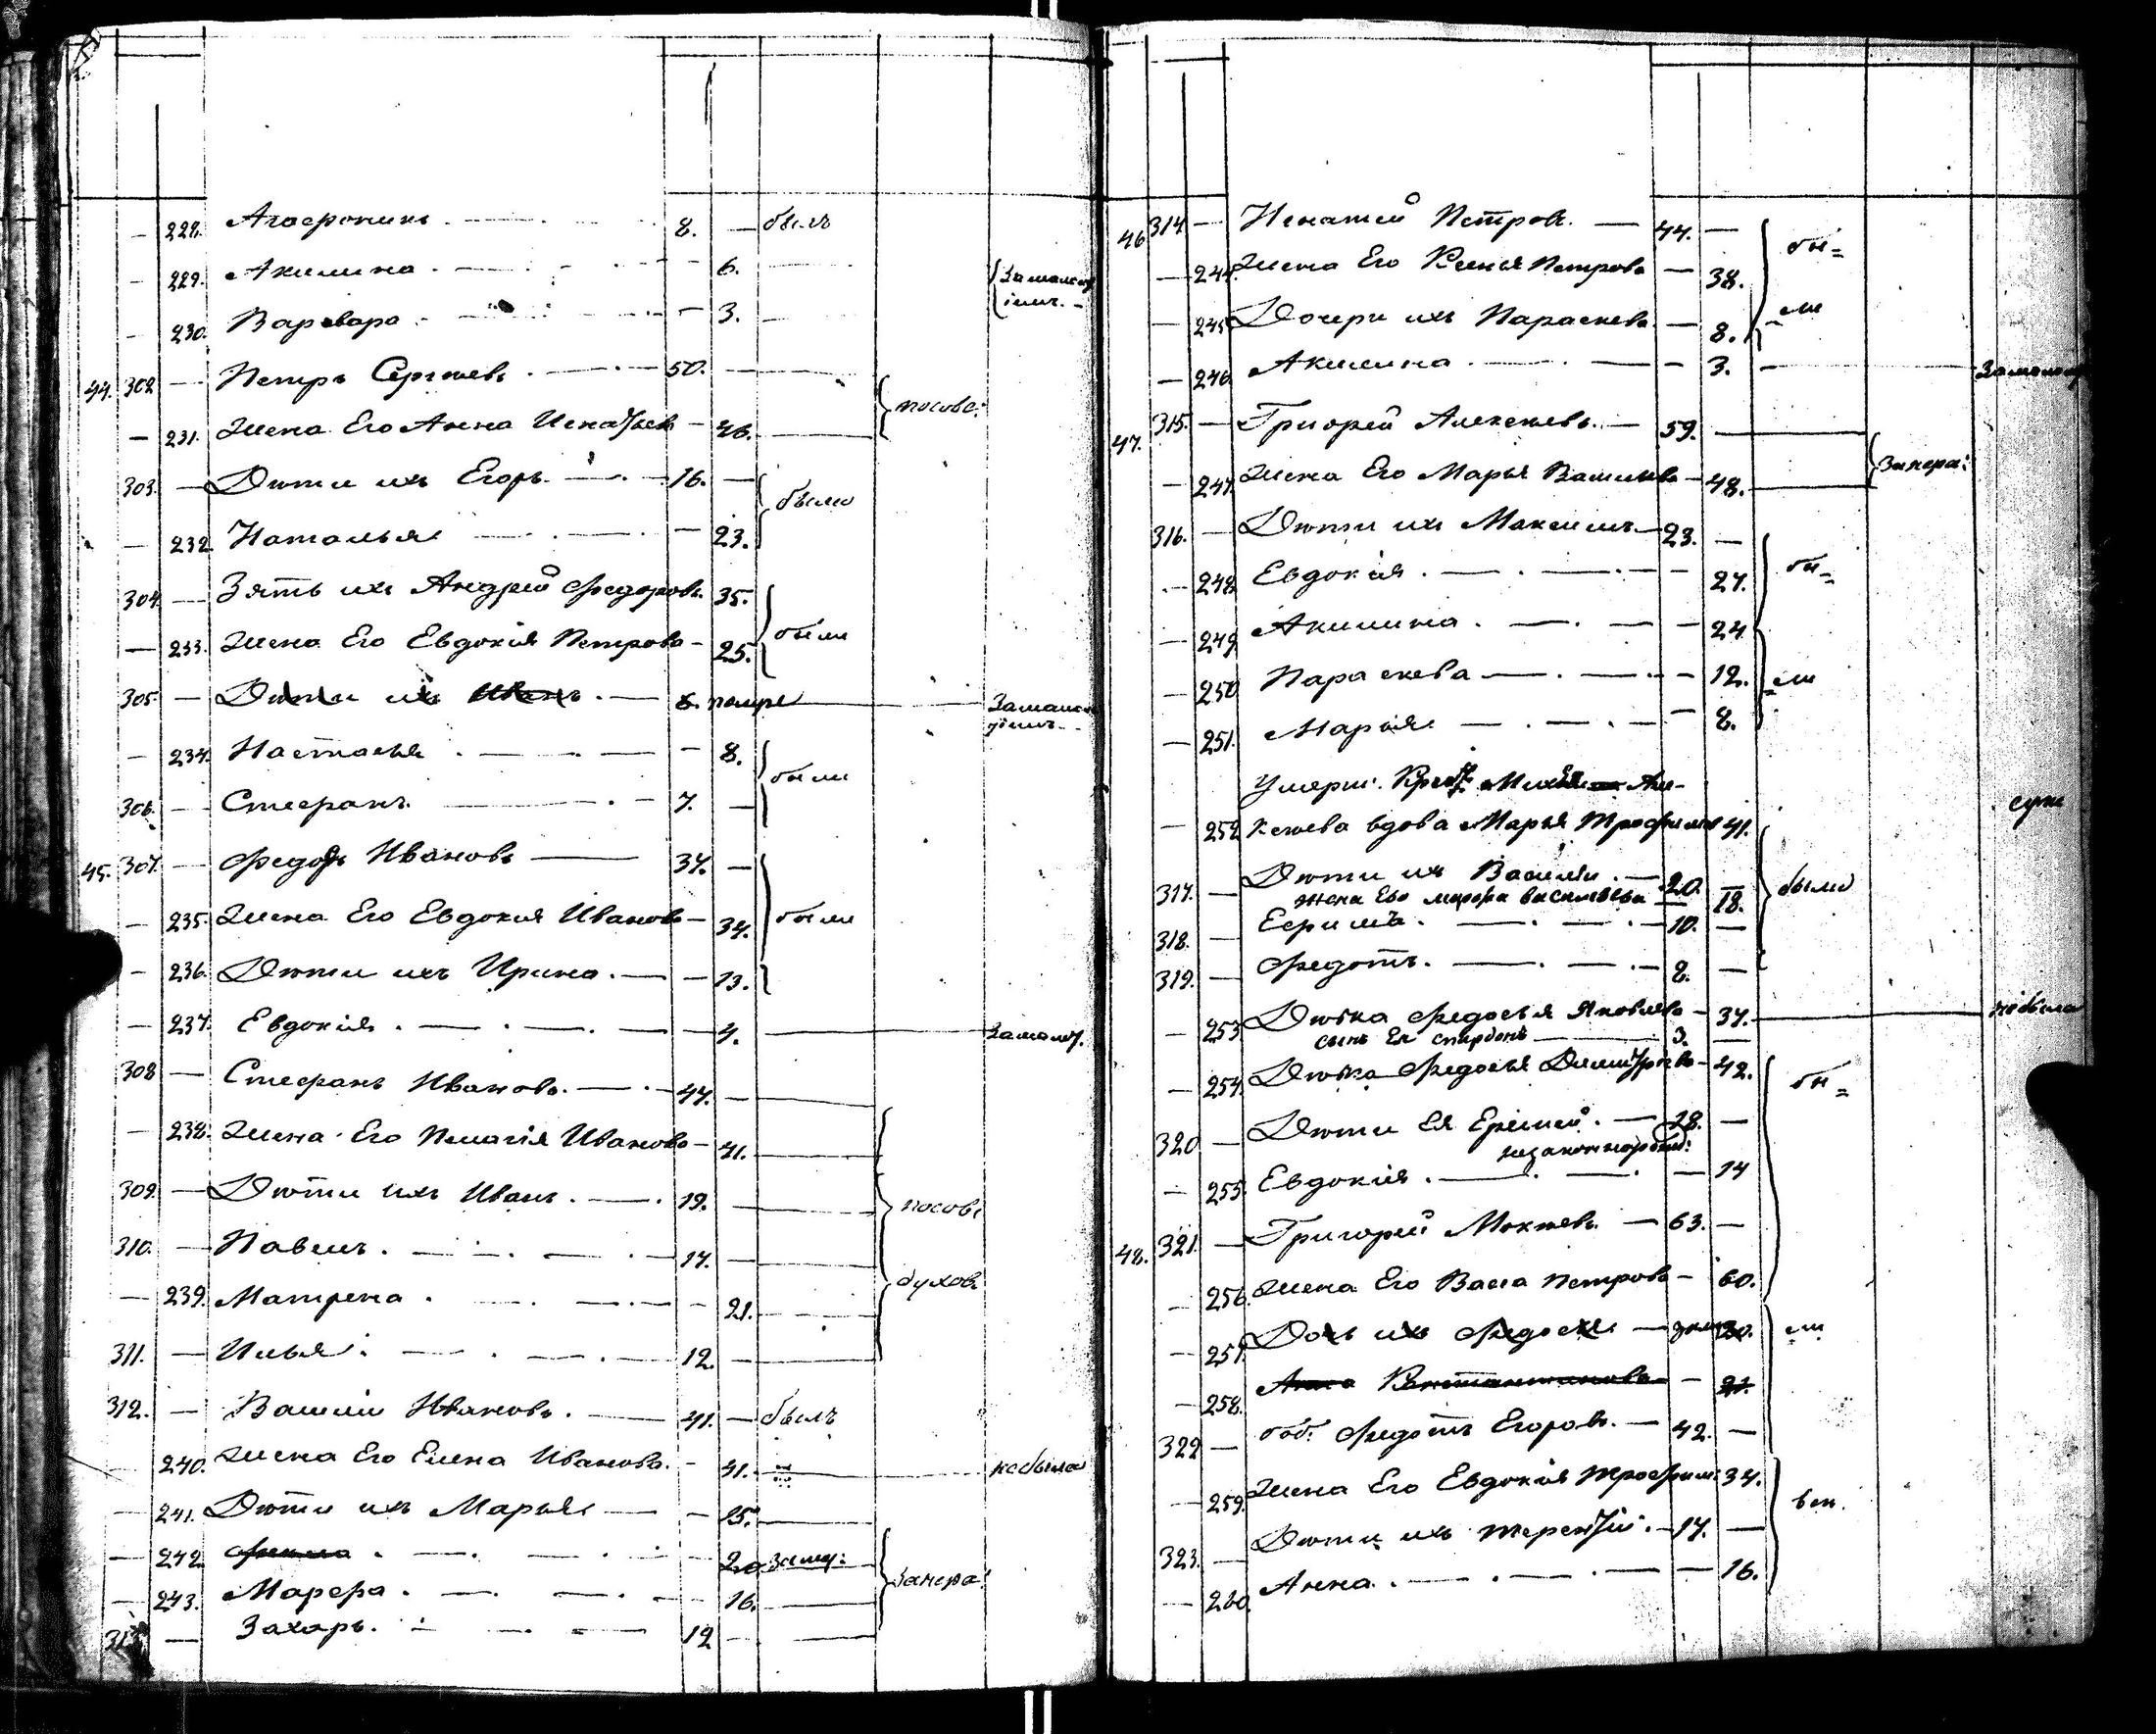 228. Агафроникъ 8. — былъ
229. Акилина 6.
230. Варвара 3.
44. 302 — Петръ Сергѣевъ 50.
231. Жена Его Анна Игнатьев — 46. исповѣ:
303. — Дѣти ихъ Егоръ 16. —
232 Наталья — 23. были
304. — Зять ихъ Андрей Федоровъ 35.
233. Жена Его Евдокія Петрова — 25. были
305. — Дѣти ихъ Иванъ 6. помре
234. Настасья — 8.
306. — Стефанъ 7. — были
45. 307. — Федоръ Ивановъ 37. —
235. Жена Его Евдокия Иванов — 34. были
236. Дѣти ихъ Ирина — 13.
237. Евдокия — 4. Замалол.
308 — Стефанъ Ивановъ 44. —
238. Жена Его Пелагія Иванова — 41.
309. — Дѣти ихъ Иванъ 19. — исповѣ
310. — Павелъ 17. —
239. Матрена — 21. духов
311. — Илья 12. —
312. — Василій Ивановъ 41. — былъ
240. Жена Его Елена Иванова — 41. небыла
241. Дѣти ихъ Марья — 15.
242. 20 заму:
243. Марѳа — 16. Занера:
313 — Захаръ 12 —
46 314 — Игнатей Петровъ 44. —
244. Жена Его Ксенья Петрова — 38. бы=
245 Дочери ихъ Параскева — 8. =ли
246 Акилина — 3.
47. 315. — Григорей Алексѣевъ 59. —
247. Жена Его Марья Васильва — 48. Занера:
316. — Дѣти ихъ Максимъ 23. —
248. Евдокія — 27. бы=
249. Акилина — 24
250 Параскева — 12. =ли
251. Марья — 8.
Умерш: Крест Миха Але-
252 ксѣева вдова Марья Трофимов 41.
317. — Дѣти ихъ Василій 20. — были
жена Его марфа васильева — 18.
318. — Ефримъ 10. —
319. — Федотъ 8. —
253 Дѣвка Федосья Яковлева — 37. небыла
сынъ Ея спиридонъ 3. —
254. Дѣвка Федосья Димитріева — 42. бы=
320 — Дѣти Ея Ермей 18. —
незаконнорожд:
255. Евдокія — 14
48. 321. — Григорей Мокѣевъ 63. —
256. Жена Его Васса Петрова — 60.
257. Дочь ихъ Федосья — 30. =ли
258. Анна Константинова — 21.
322 — боб: Федотъ Егоровъ 42. —
259. Жена Его Евдокія Трофим: 34.
323. — Дѣти ихъ Терентій 17. —
260. Анна — 16.